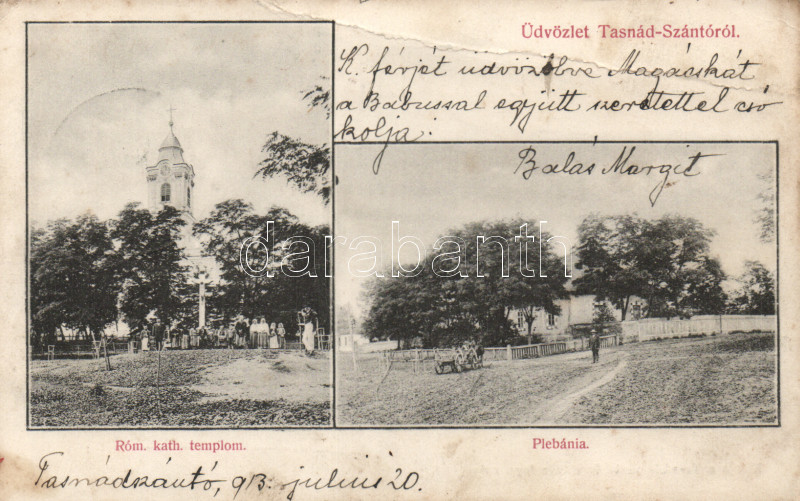 Üdvözlet Tasnád-Szántóról.
K. férjét üdvözölve Magácskát
a Babussal együtt szeretettel csó
kolja
Balás Margit
darabanth.com
Róm. kath. templom.
Plebánia.
Tasnádszántó, 913. július 20.